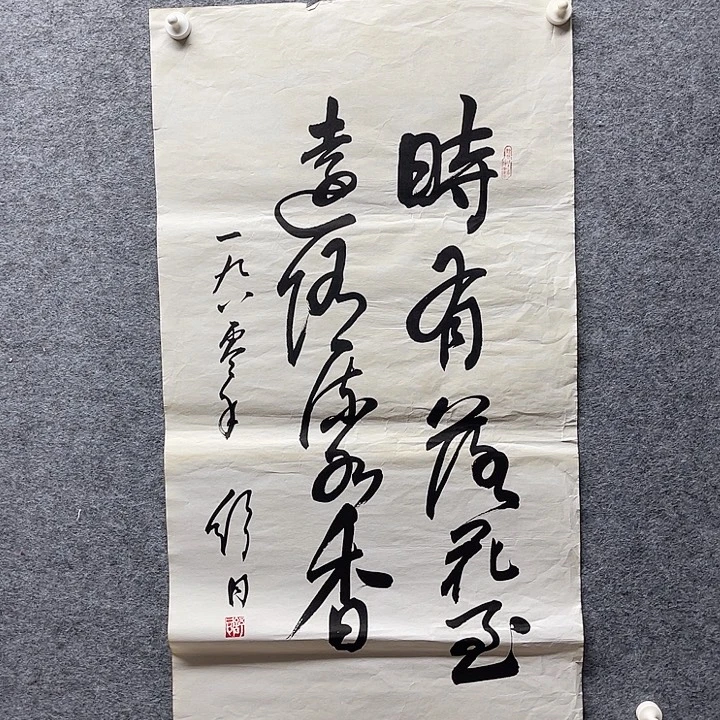 時有落花至
遠随流水香
一九八零年
舒同